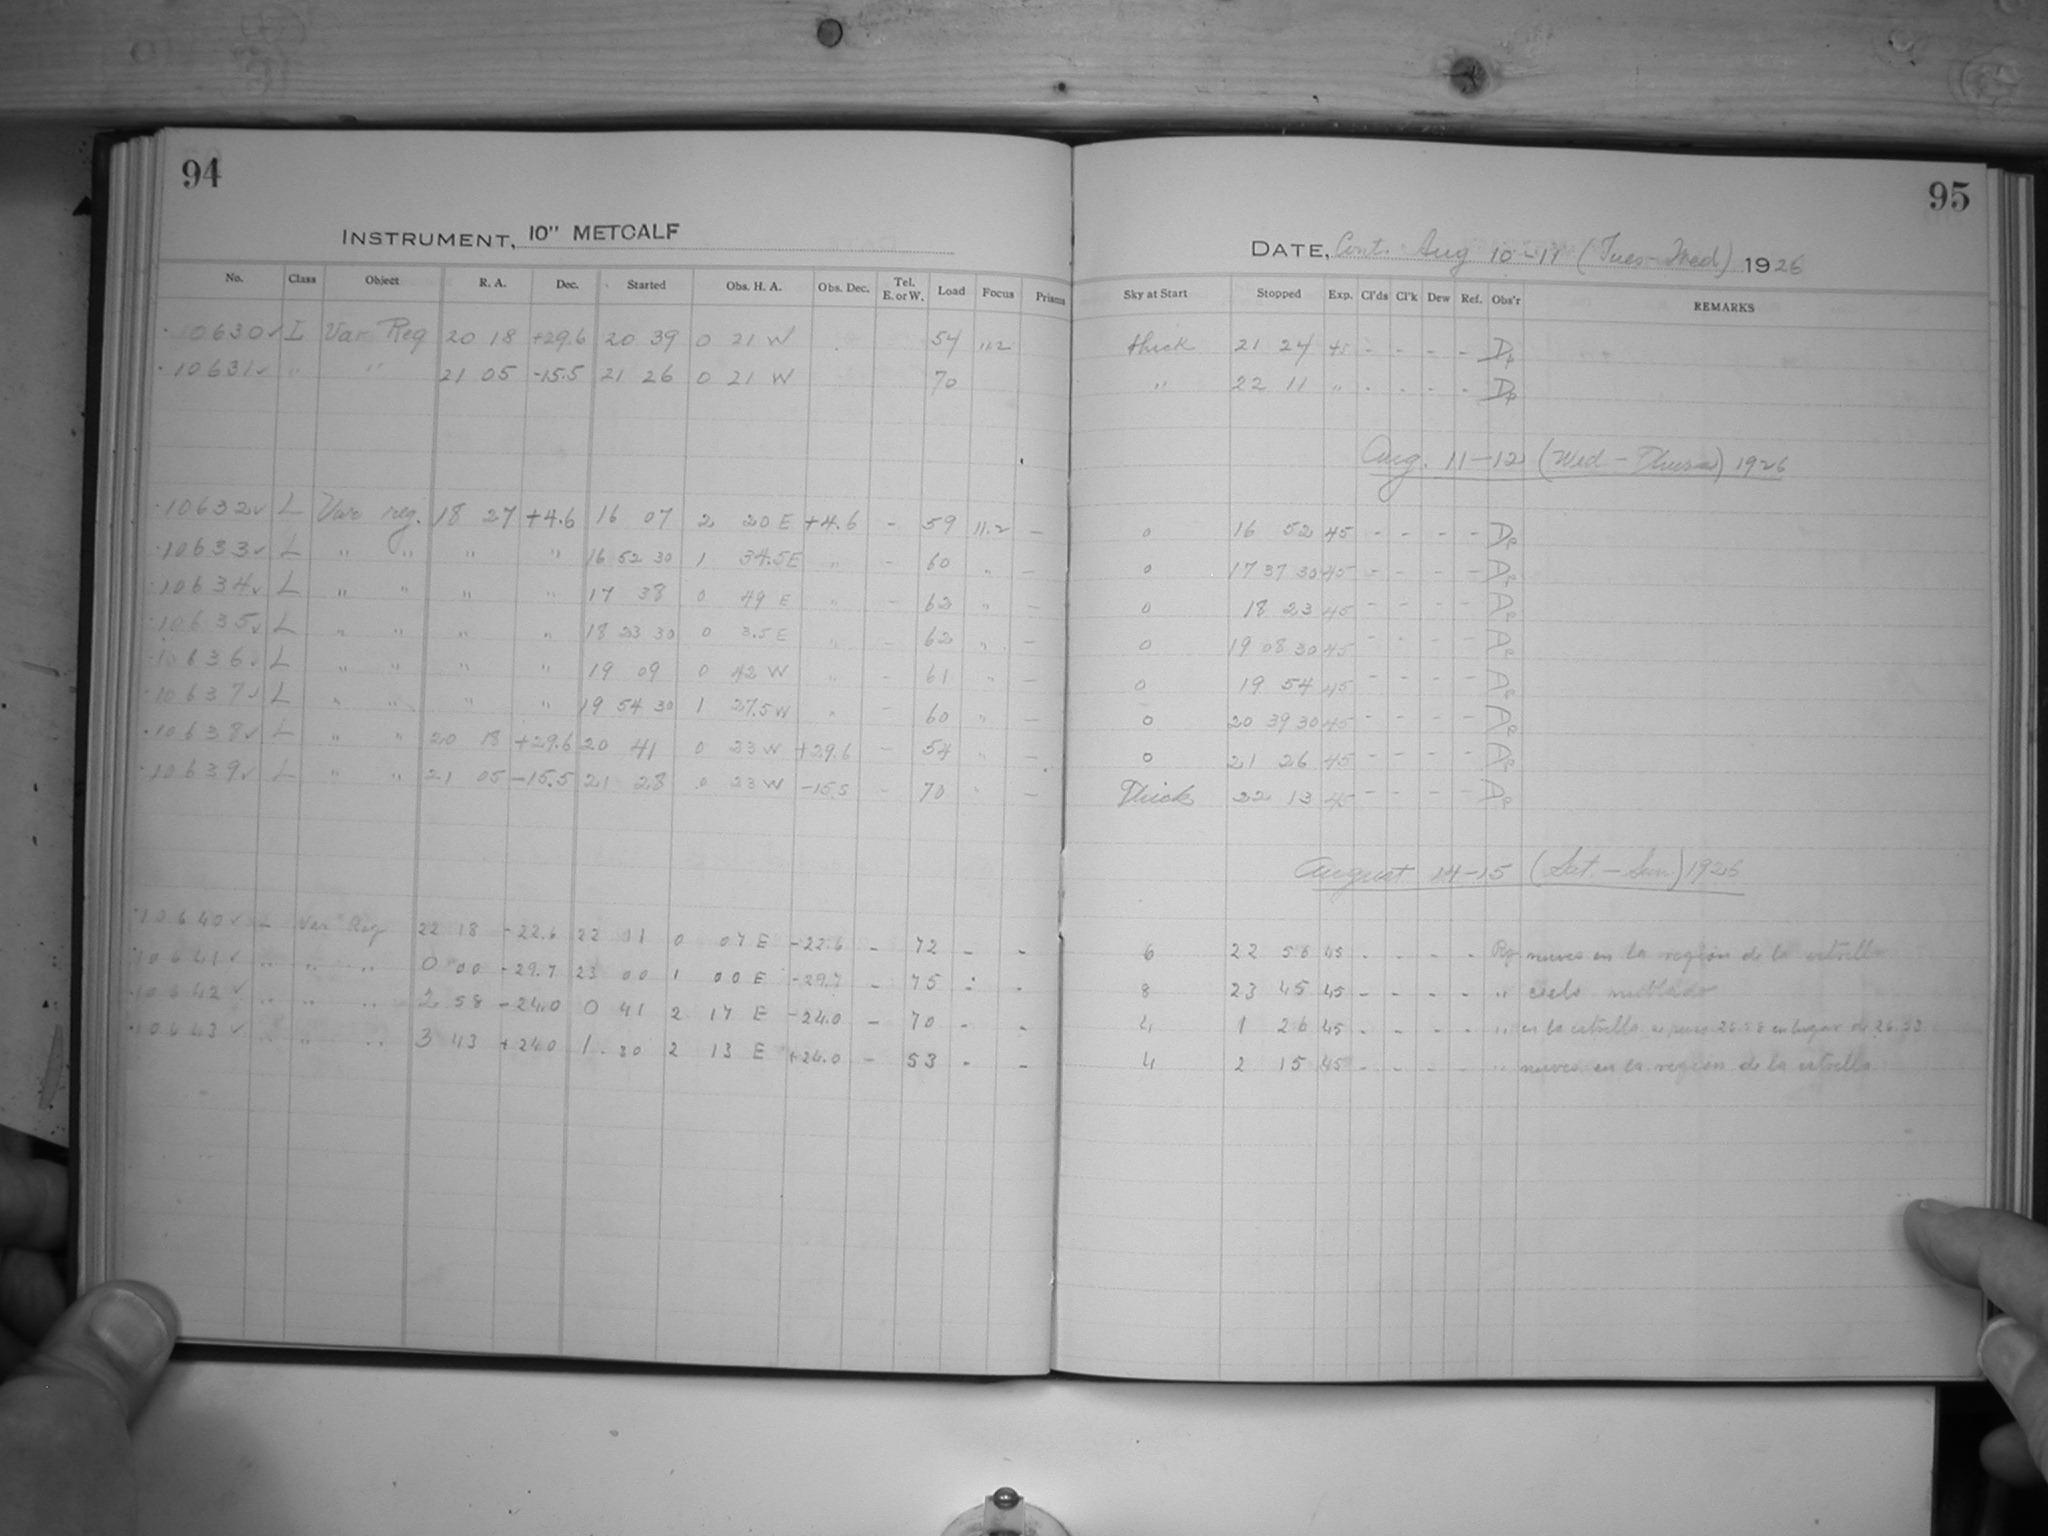 94
INSTRUMENT, 10" METCALF
No. Class Object R. A. Dec. Started Obs. H. A. Obs. Dec. Tel. E. or W. Load Focus Prisms
10630 ✓ L Var Reg 20 18 +29.6 20 39 0 21 W 54 11.2
10631 ✓ " " 21 05 -15.5 21 26 0 21 W 70
10632 ✓ L Var reg. 18 27 +4.6 16 07 2 20 E +4.6 - 59 11.2 -
10633 ✓ L " " " " 16 52 30 1 34.5 E " - 60 " -
10634 ✓ L " " " " 17 38 0 49 E " - 62 " -
10635 ✓ L " " " " 18 23 30 0 3.5 E " - 62 " -
10636 ✓ L " " " " 19 09 0 42 W " - 61 " -
10637 ✓ L " " " " 19 54 30 1 27.5 W " - 60 " -
10638 ✓ L " " 20 18 +29.6 20 41 0 23 W +29.6 - 54 " -
10639 ✓ L " " 21 05 -15.5 21 28 0 23 W -15.5 - 70 " -
10640 ✓ L Var Reg 22 18 -22.6 22 11 0 07 E -22.6 - 72 - -
10641 ✓ " " " 0 00 -29.7 23 00 1 00 E -29.7 - 75 - -
10642 ✓ " " " 2 58 -24.0 0 41 2 17 E -24.0 - 70 - -
10643 ✓ " " " 3 43 +24.0 1 30 2 13 E +24.0 - 53 - -
95
DATE, Cont. Aug 10-11 (Tues-Wed) 1926
Sky at Start Stopped Exp. Cl'ds Cl'k Dew Ref. Obs'r REMARKS
thick 21 24 45 - - - -
" 22 11 " - - - -
Aug. 11-12 (Wed - Thurs) 1926
0 16 52 45 - - - -
0 17 37 30 45 - - - -
0 18 23 45 - - - -
0 19 08 30 45 - - - -
0 19 54 45 - - - -
0 20 39 30 45 - - - -
0 21 26 45 - - - -
Thick 22 13 45 - - - -
August 14-15 (Sat. - Sun) 1926
6 22 56 45 - - - - nuves en la region de la estrella
8 23 45 45 - - - - " cielo nublado
4 1 26 45 - - - - " en la estrella se puso 26.58 en lugar de 26.53
4 2 15 45 - - - - " nuves en la region de la estrella